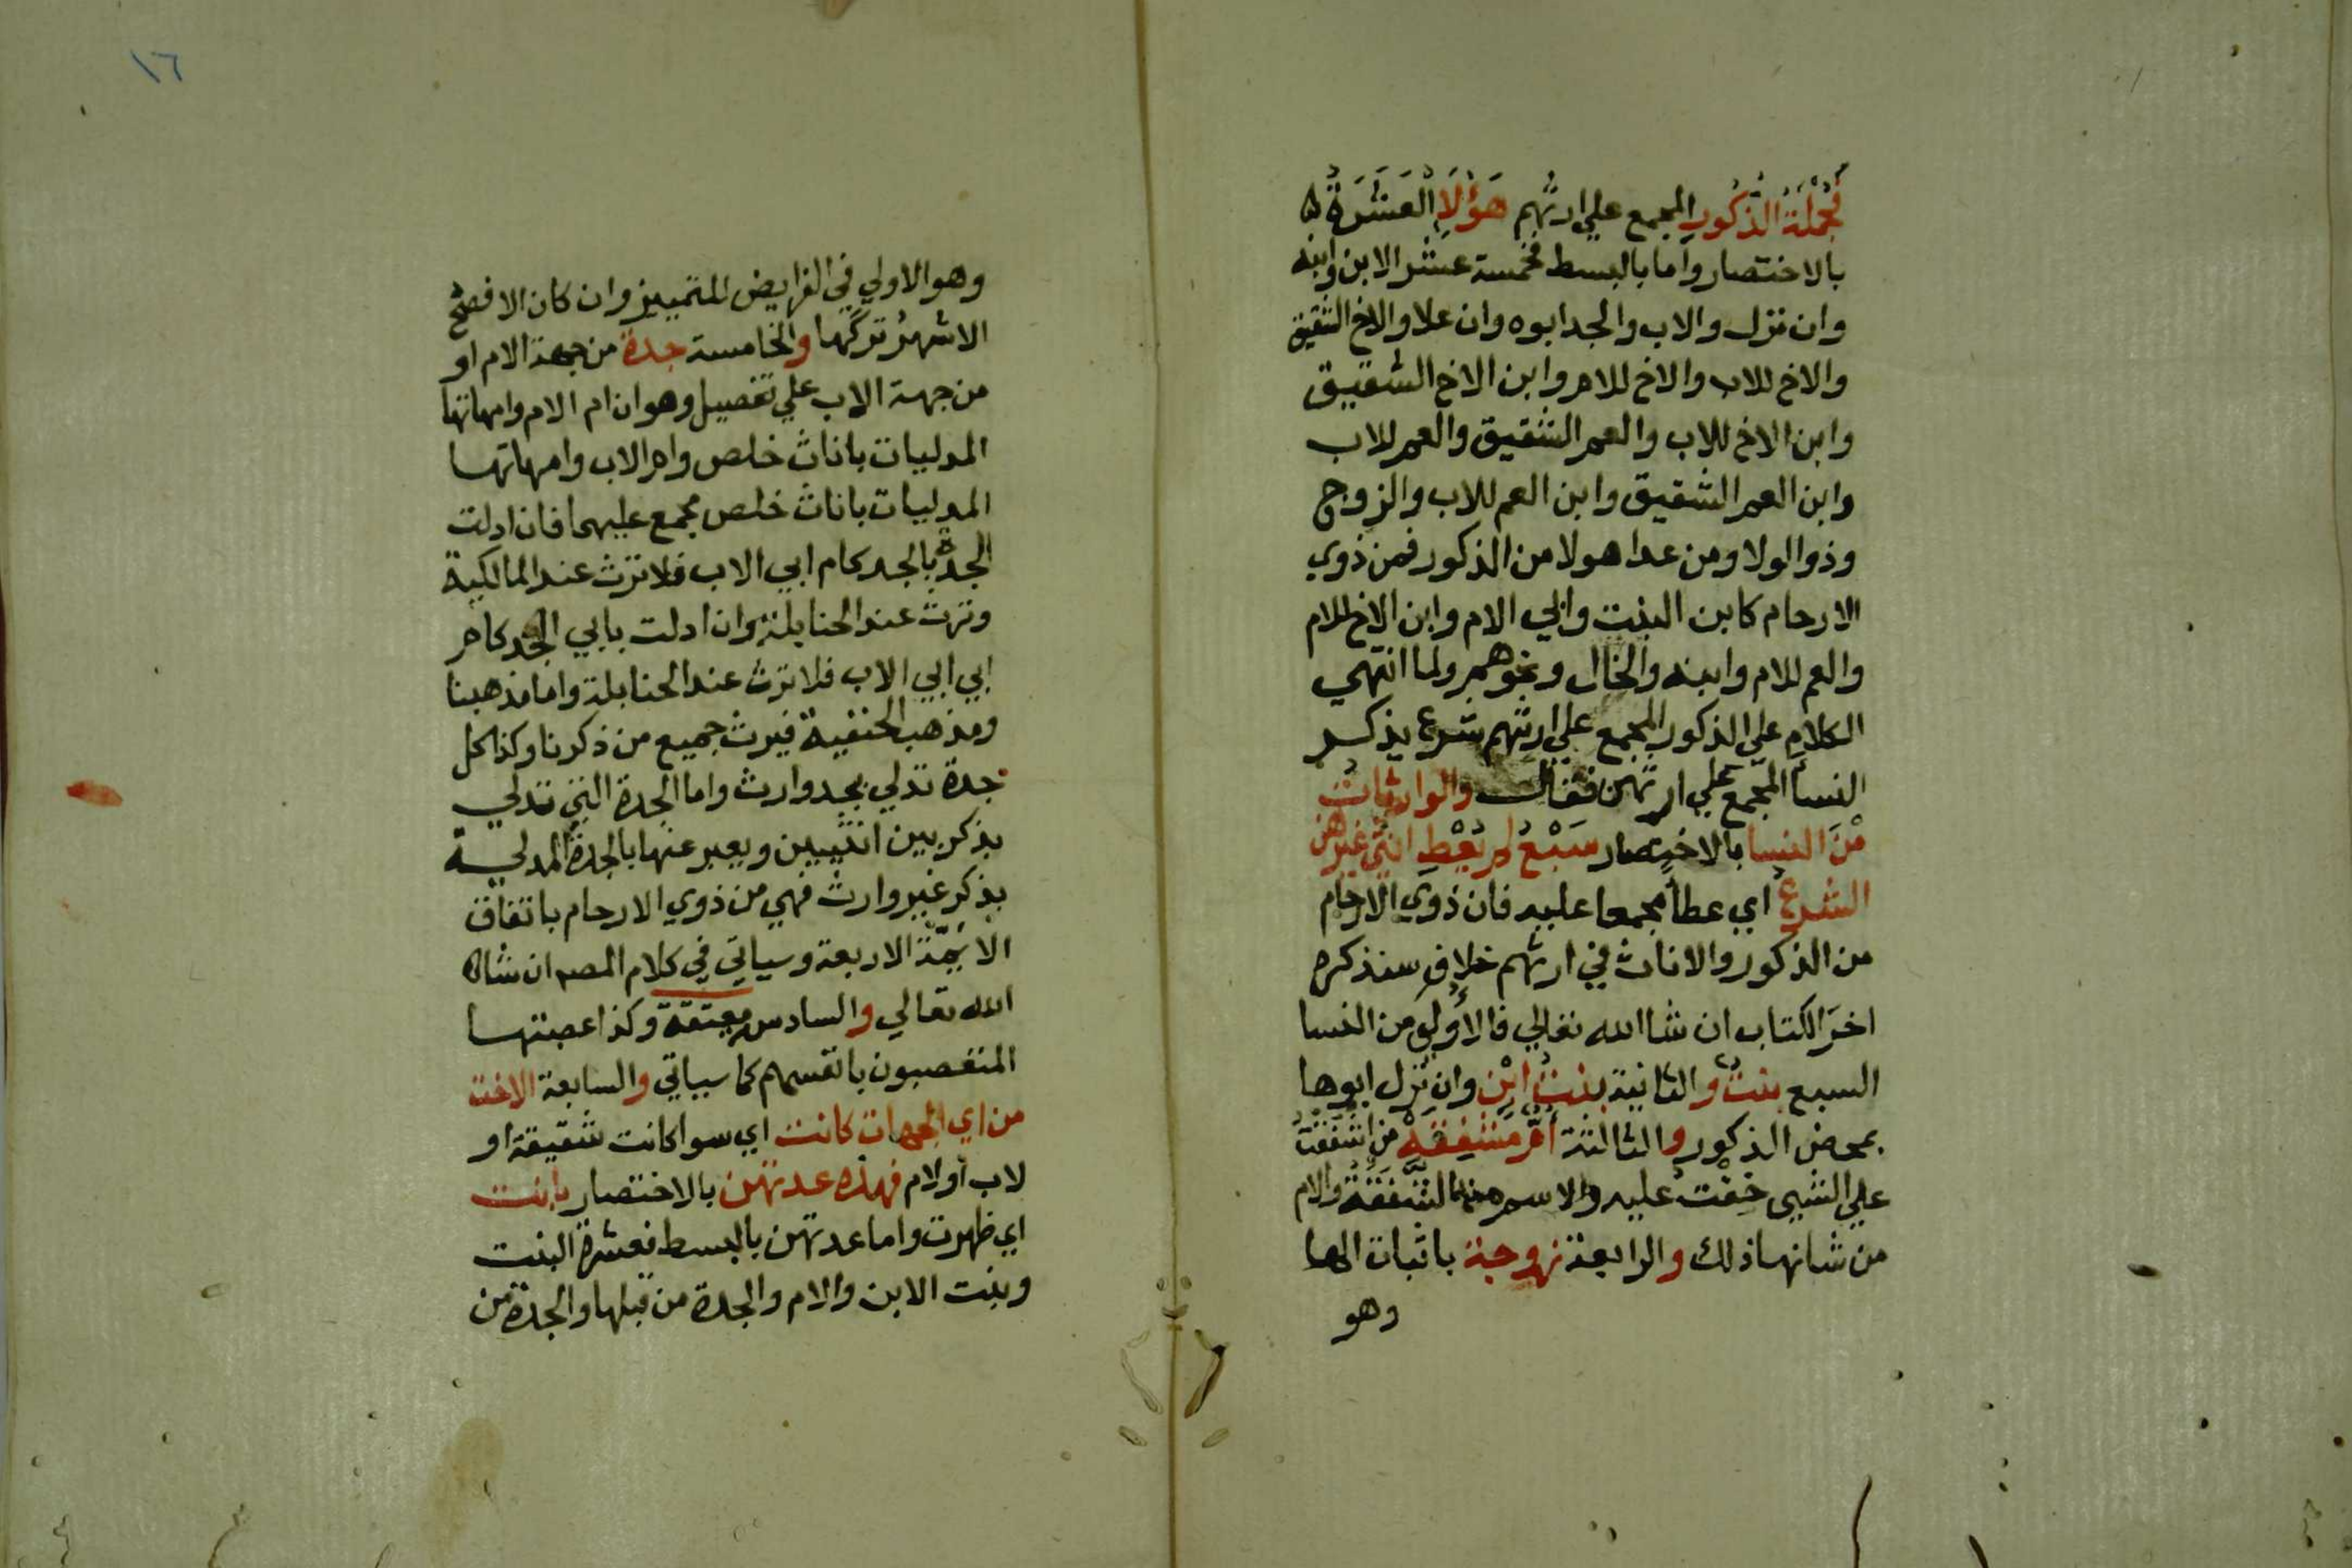 فَجُمْلَةُ الذُّكُورِ المجمع علي ارثهم هَؤُلَاِ الْعَشَرَةُ ه
بالاختصار واما بالبسط فخمسة عشر الابن وابنه
وان نزل والاب والجد ابوه وان علا والاخ الشقيق
والاخ للاب والاخ للام وابن الاخ الشقيق
وابن الاخ للاب والعم الشقيق والعم للاب
وابن العم الشقيق وابن العم للاب والزوج
وذوا الولا ومن عدا هولا من الذكور فمن ذوي
الارحام كابن البنت وابي الام وابن الاخ للام
والعم للام وابنه والخال ونحوهم ولما انتهي
الكلام علي الذكور المجمع علي ارثهم شرع يذكر
النسا المجمع علي ارثهن فقال والوارثات
مِنَ النسا بالاختصار سَبْعُ لم يُعْطِ انثي غيرهن
الشرع اي عطا مجمعا عليه فان ذوي الارحام
من الذكور والاناث في ارثهم خلاف سنذكره
اخر الكتاب ان شا الله تعالي فالأولي من النسا
السبع بنت والثانية بنت ابن وان نزل ابوها
بمحض الذكور والثالثة أمٌّ مشفقة من اشفقت
علي الشيى خفت عليه والاسم منه الشفقة والام
من شانها ذلك والرابعة زوجة باثبات الها
وهو
١٦
وهو الاولي في الفرايض للتمييز وان كان الافصح
الاشهر تركها والخامسة جدة من جهة الام او
من جهة الاب علي تفصيل وهو ان ام الام وامهاتها
المدليات باناث خلص وام الاب وامهاتها
المدليات باناث خلص مجمع عليهما فان ادلت
الجدة بالجد كام ابي الاب فلا ترث عند المالكية
وترث عند الحنابلة وان ادلت بابي الجد كام
ابي ابي الاب فلا ترث عند الحنابلة واما مذهبنا
ومذهب الحنفية فيرث جميع من ذكرنا وكذا كل
جدة تدلي بجد وارث واما الجدة التي تدلي
بذكر بين انثيين ويعبر عنها بالجدة المدلية
بذكر غير وارث فهي من ذوي الارحام باتفاق
الايمة الاربعة وسياتي في كلام المصـ ان شاه
الله تعالي والسادس معتقة وكذا عصبتها
المتعصبون بانفسهم كما سياتي والسابعة الاخت
من اي الجهات كانت اي سوا كانت شقيقة او
لاب او لام فهذه عدتهن بالاختصار بانت
اي ظهرت واما عدتهن بالبسط فعشرة البنت
وبنت الابن والام والجدة من قبلها والجدة من